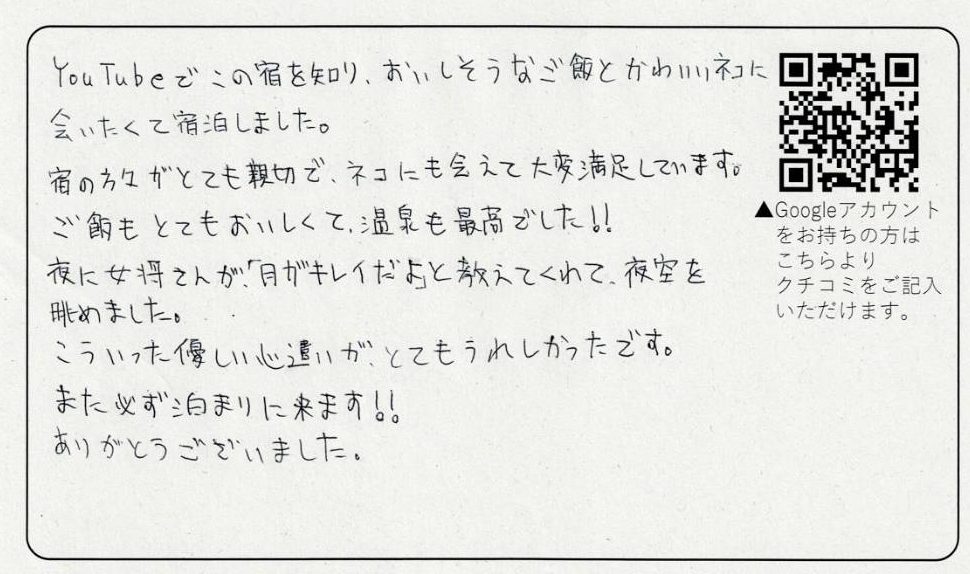 YouTubeでこの宿を知り、おいしそうなご飯とかわいいネコに
会いたくて宿泊しました。
宿の方々がとても親切で、ネコにも会えて大変満足しています。
ご飯もとてもおいしくて、温泉も最高でした!!
夜に女将さんが、「月がキレイだよ」と教えてくれて、夜空を
眺めました。
こういった優しい心遣いが、とてもうれしかったです。
また必ず泊まりに来ます!!
ありがとうございました。
▲Googleアカウント
をお持ちの方は
こちらより
クチコミをご記入
いただけます。